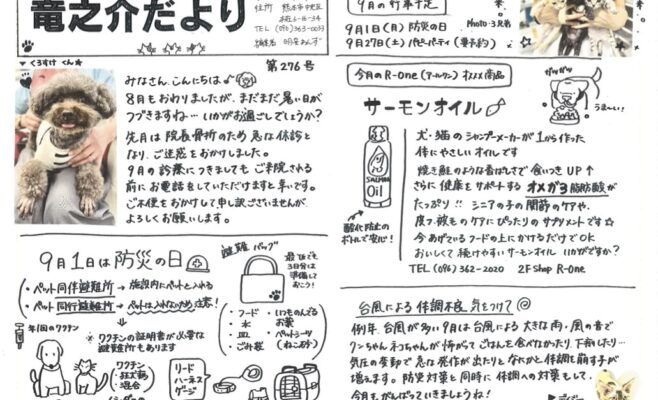 竜之介だより
住所 熊本市中央区
本荘6-16-34
TEL (096)363-0033
編集者
第276号
くろすけ くん
みなさん、こんにちは
8月もおわりましたが、まだまだ暑い日が
つづきますね… いかがお過ごしでしょうか?
先月は 院長骨折のため 急な休診と
なり、ご迷惑をおかけしました。
9月の診察につきましても、ご来院される
前にお電話をしていただけますと幸いです。
ご不便をおかけして申し訳ございませんが、
よろしくお願いします。
9月1日は防災の日
・ペット同伴避難所 → 施設内にペットと入れる
・ペット同行避難所 → ペットは入れないため注意!
年1回のワクチン
※ワクチンの証明書が必要な
避難所もあります
ワクチン
・狂犬病
・混合
避難バッグ
最低でも
3日分は
準備して
おこう!
・フード
・水
・皿
・ごみ袋
・いつものんでる
お薬
・ペットシーツ
(ねこ砂)
リード
ハーネス
ゲージ
9月の行事予定
9月1日(月)防災の日
9月27日(土)パピーパーティ(要予約)
Photo:3兄弟
今月のR-One(アールワン)オススメ商品
サーモンオイル
ガツガツ
うま〜い!
SALMON
Oil
酸化防止の
ボトルで安心!
犬・猫のシャンプーメーカーが1から作った
体にやさしいオイルです
焼き鮭のような香ばしさで食いつきUP↑
さらに健康をサポートするオメガ3脂肪酸が
たっぷり!! シニアの子の関節のケアや、
皮フ・被毛のケアにぴったりのサプリメントです☆
今あげているフードの上にかけるだけでOK
おいしくて続けやすいサーモンオイル いかがですか?
TEL (096) 362-2020 2F Shop R-One
台風による体調不良 気をつけて
例年、台風が多い9月は台風による大きな雨・風の音で
ワンちゃん、ネコちゃんが怖がってごはんを食べなかったり、下痢したり…
気圧の変動で急な発作が出たりと、なにかと体調を崩す子が
増えます。防災対策と同時に体調への対策もして、
今月もがんばっていきましょうね!